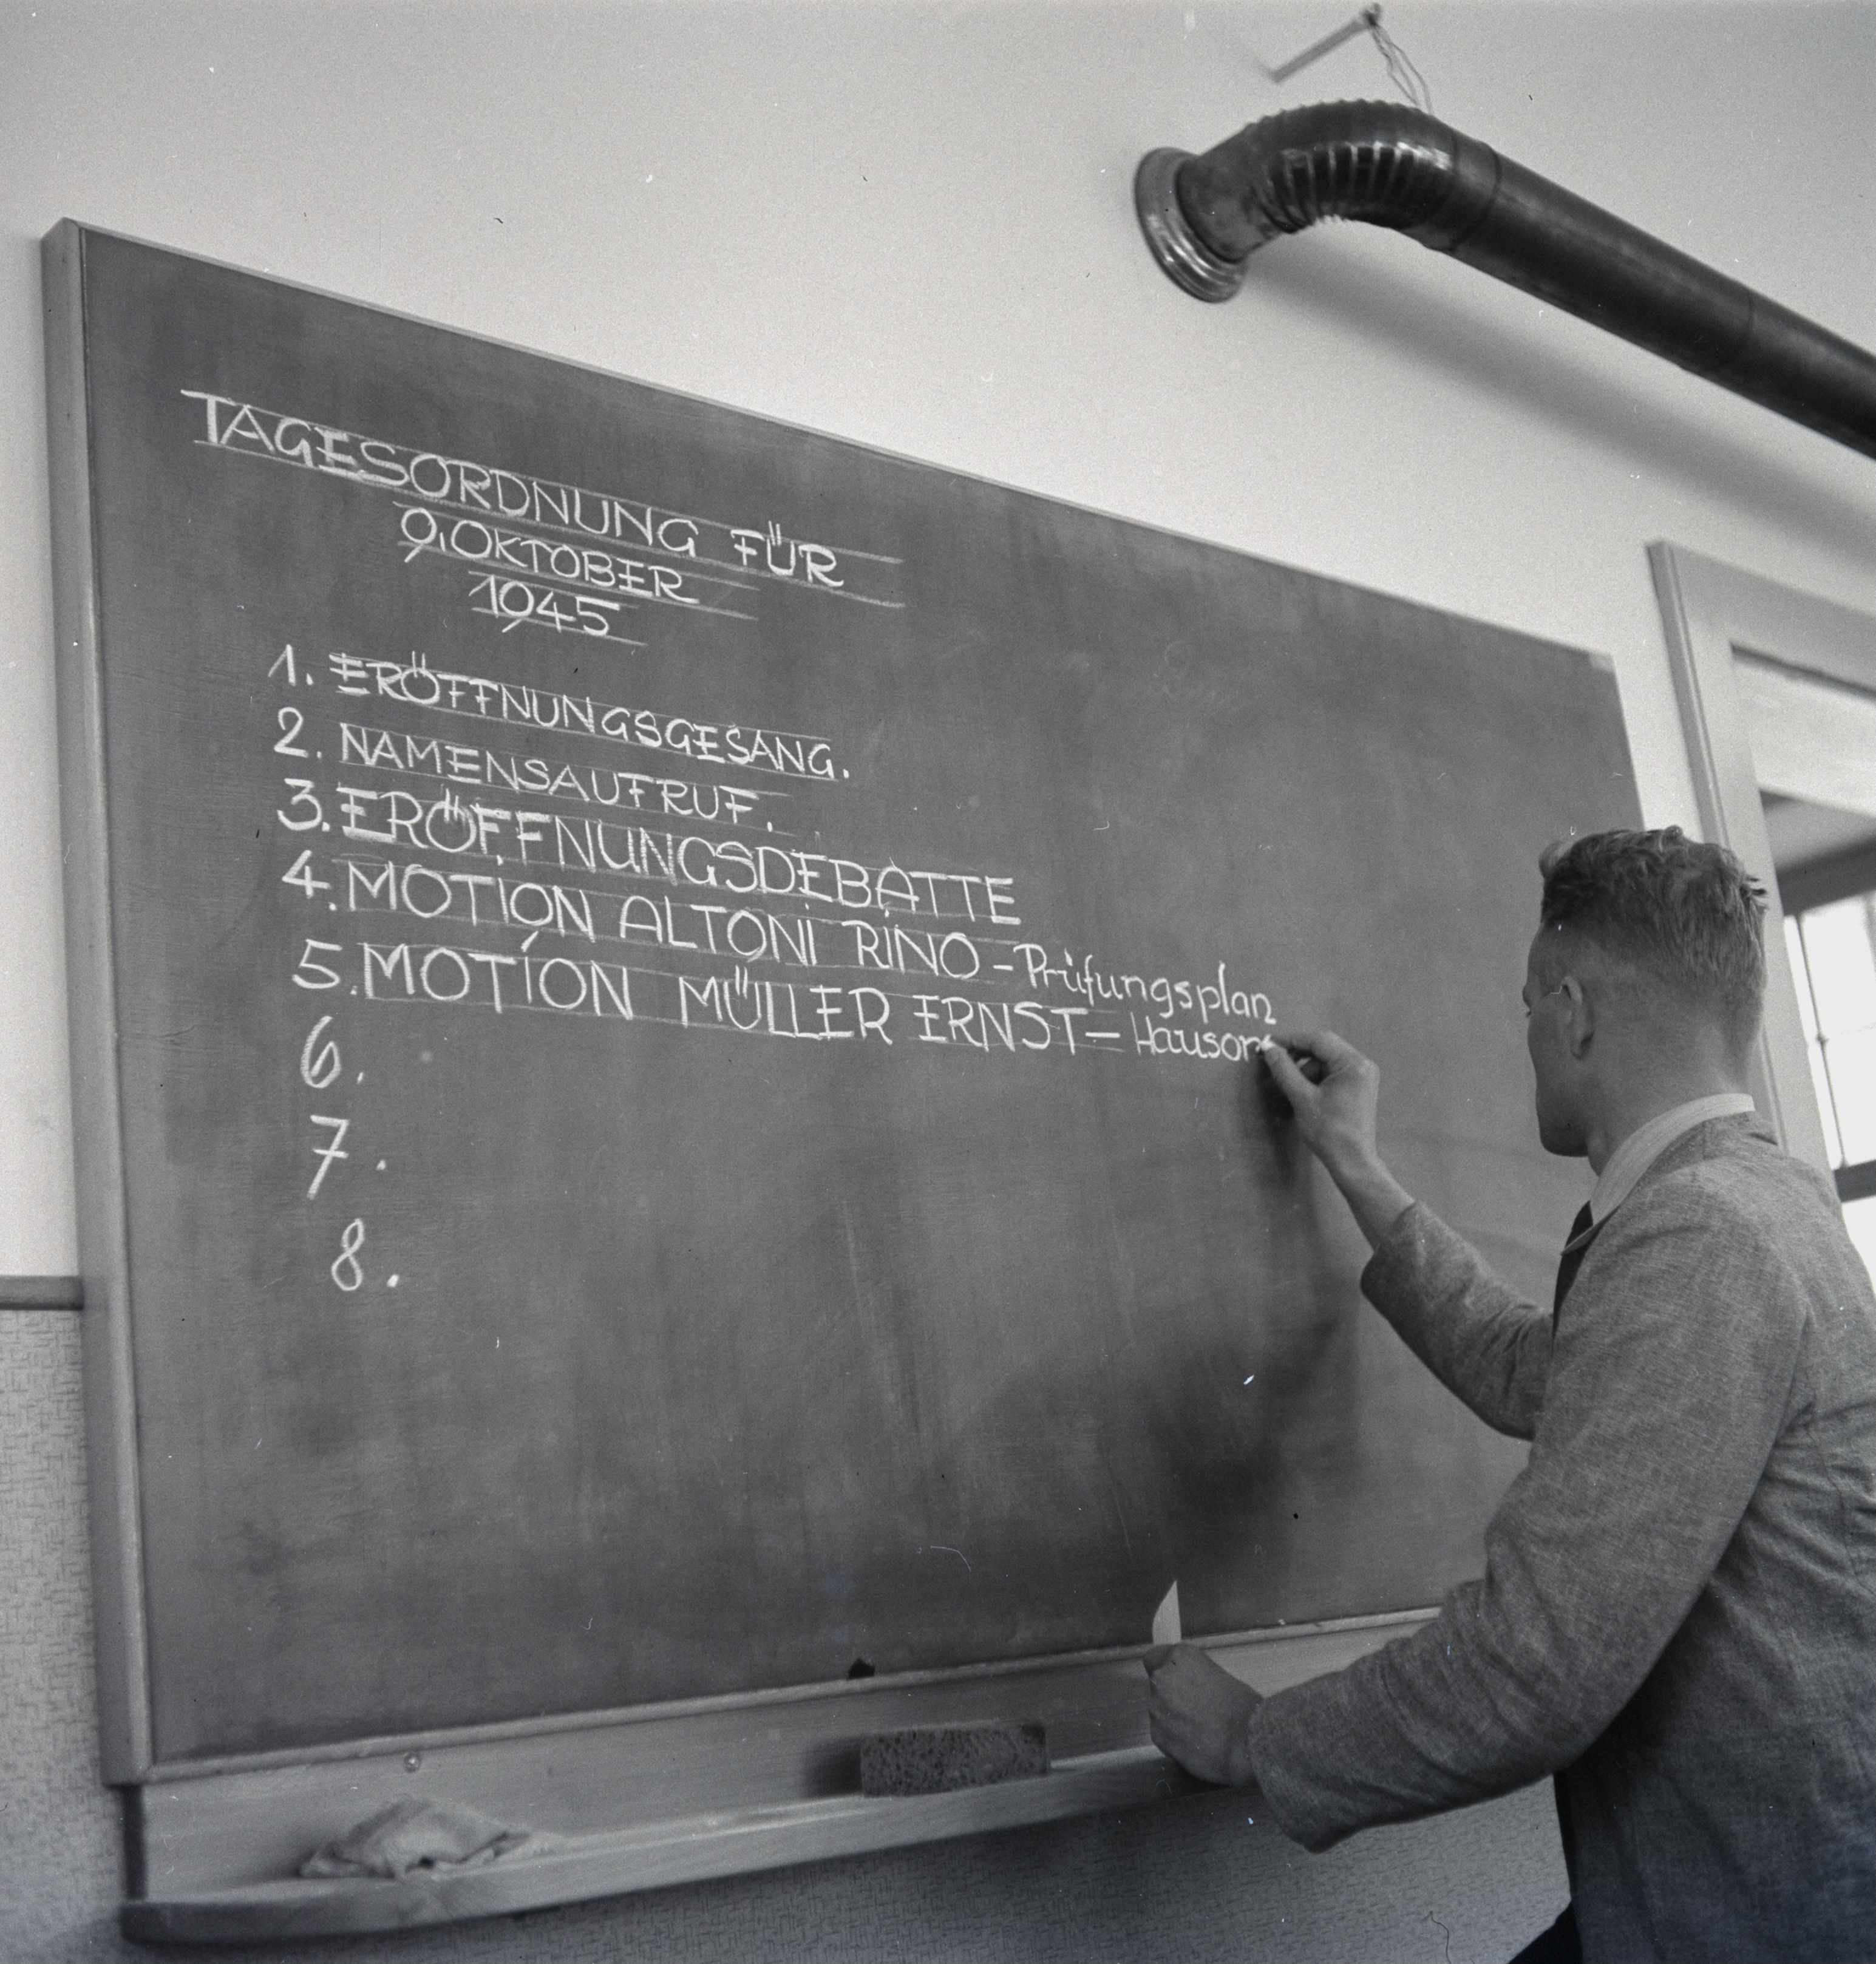 TAGESORDNUNG FÜR
9. OKTOBER
1945
1. ERÖFFNUNGSGESANG.
2. NAMENSAUFRUF.
3. ERÖFFNUNGSDEBATTE
4. MOTION ALTONI RINO - Prüfungsplan
5. MOTION MÜLLER ERNST - Hausor
6.
7.
8.